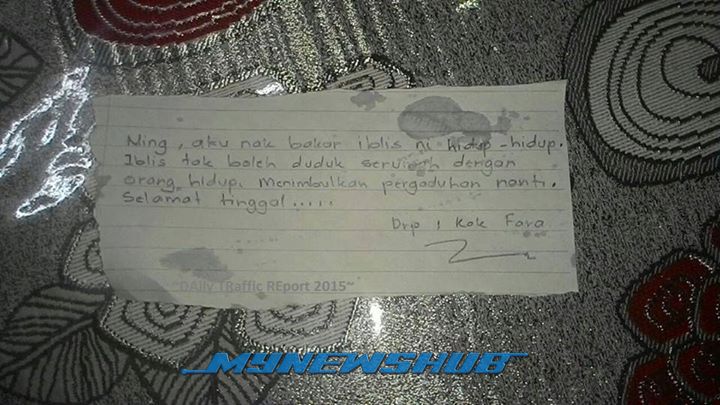 Ning, aku nak bakar iblis ni hidup-hidup.
Iblis tak boleh duduk serumah dengan
orang hidup. Menimbulkan pergaduhan nanti.
Selamat tinggal.....
Drp, Kak Fara
~DAily TRaffic REport 2015~
MYNEWSHUB